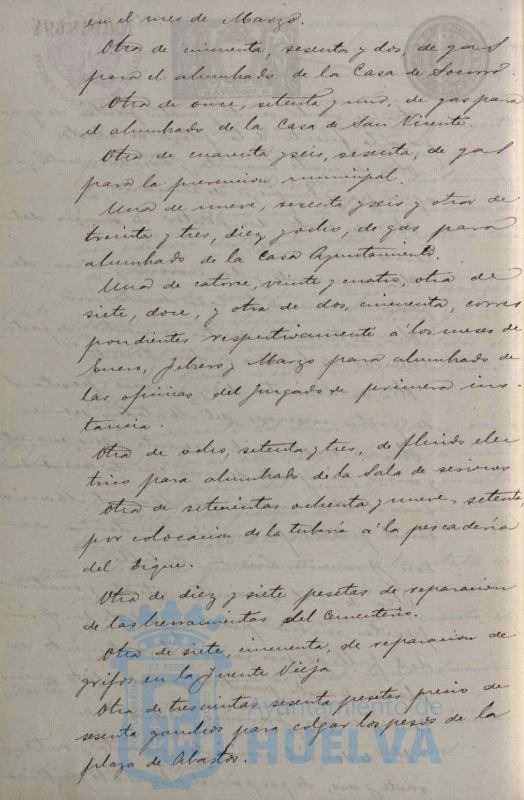 en el mes de Marzo.
Otra de cincuenta, sesenta y dos, de gas
para el alumbrado de la Casa de Socorro.
Otra de once, setenta y uno, de gas para
el alumbrado de la Casa de San Vicente.
Otra de cuarenta y seis, sesenta, de gas
para la prevencion municipal.
Una de nueve, sesenta y seis y otra de
treinta y tres, diez y ocho, de gas para
alumbrado de la Casa Ayuntamiento.
Una de catorce, veinte y cuatro, otra de
siete, doce, y otra de dos, cincuenta, corres
pondientes respectivamente á los meses de
Enero, Febrero y Marzo para alumbrado de
las oficinas del Juzgado de primera ins-
tancia.
Otra de ocho, setenta y tres, de fluido elec
trico para alumbrado de la Sala de sesiones
Otra de setecientas ochenta y nueve, setenta,
por colocacion de la tubería á la pescadería
del Dique.
Otra de diez y siete pesetas de reparacion
de las herramientas del Cementerio.
Otra de siete, cincuenta, de reparacion de
grifos en la Fuente Vieja
Otra de trescientas sesenta pesetas precio de
sesenta ganchos para colgar los pesos de la
plaza de Abastos.
Ayuntamiento de
HUELVA